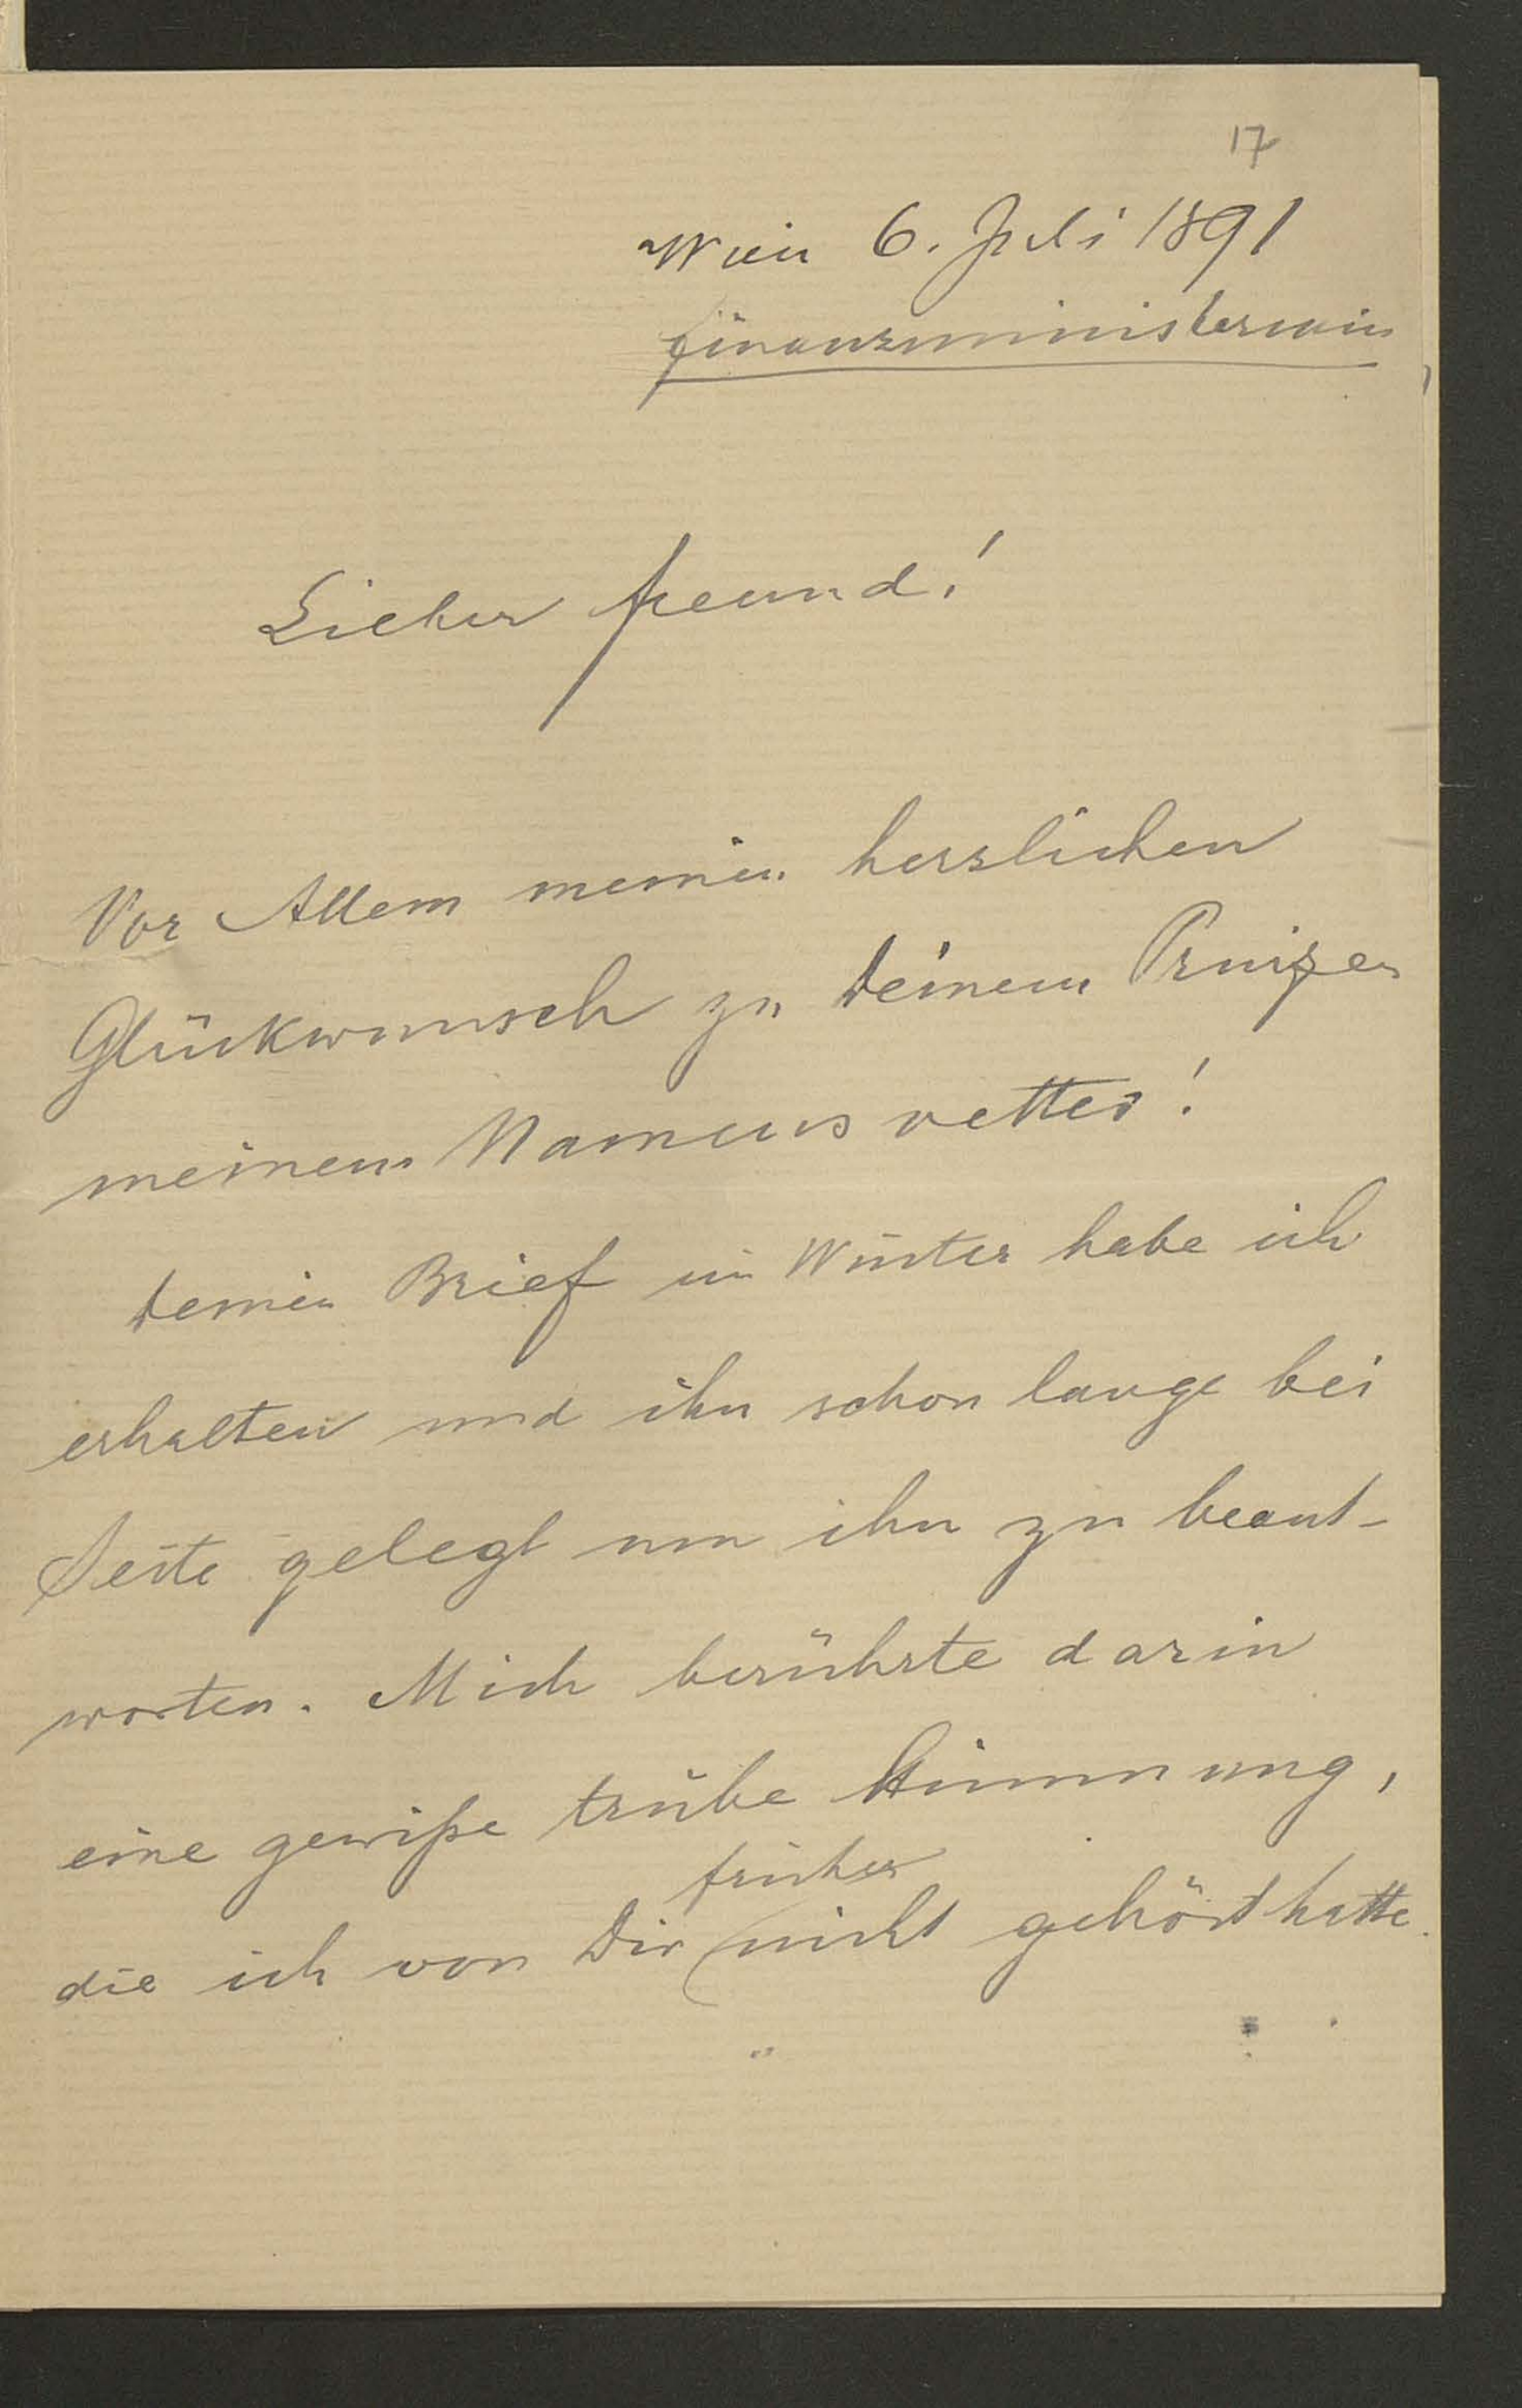 17
Wien 6. Juli 1891
Finanzministerium
Lieber Freund!
Vor Allem meinen herzlichen
Glückwunsch zu Deinem Prinzen
meinem Namensvetter!
Deinen Brief im Winter habe ich
erhalten und ihn schon lange bei
Seite gelegt um ihn zu beant-
worten. Mich berührte darin
eine gewiße trübe Stimmung,
früher
die ich von Dir nicht gehört hatte.